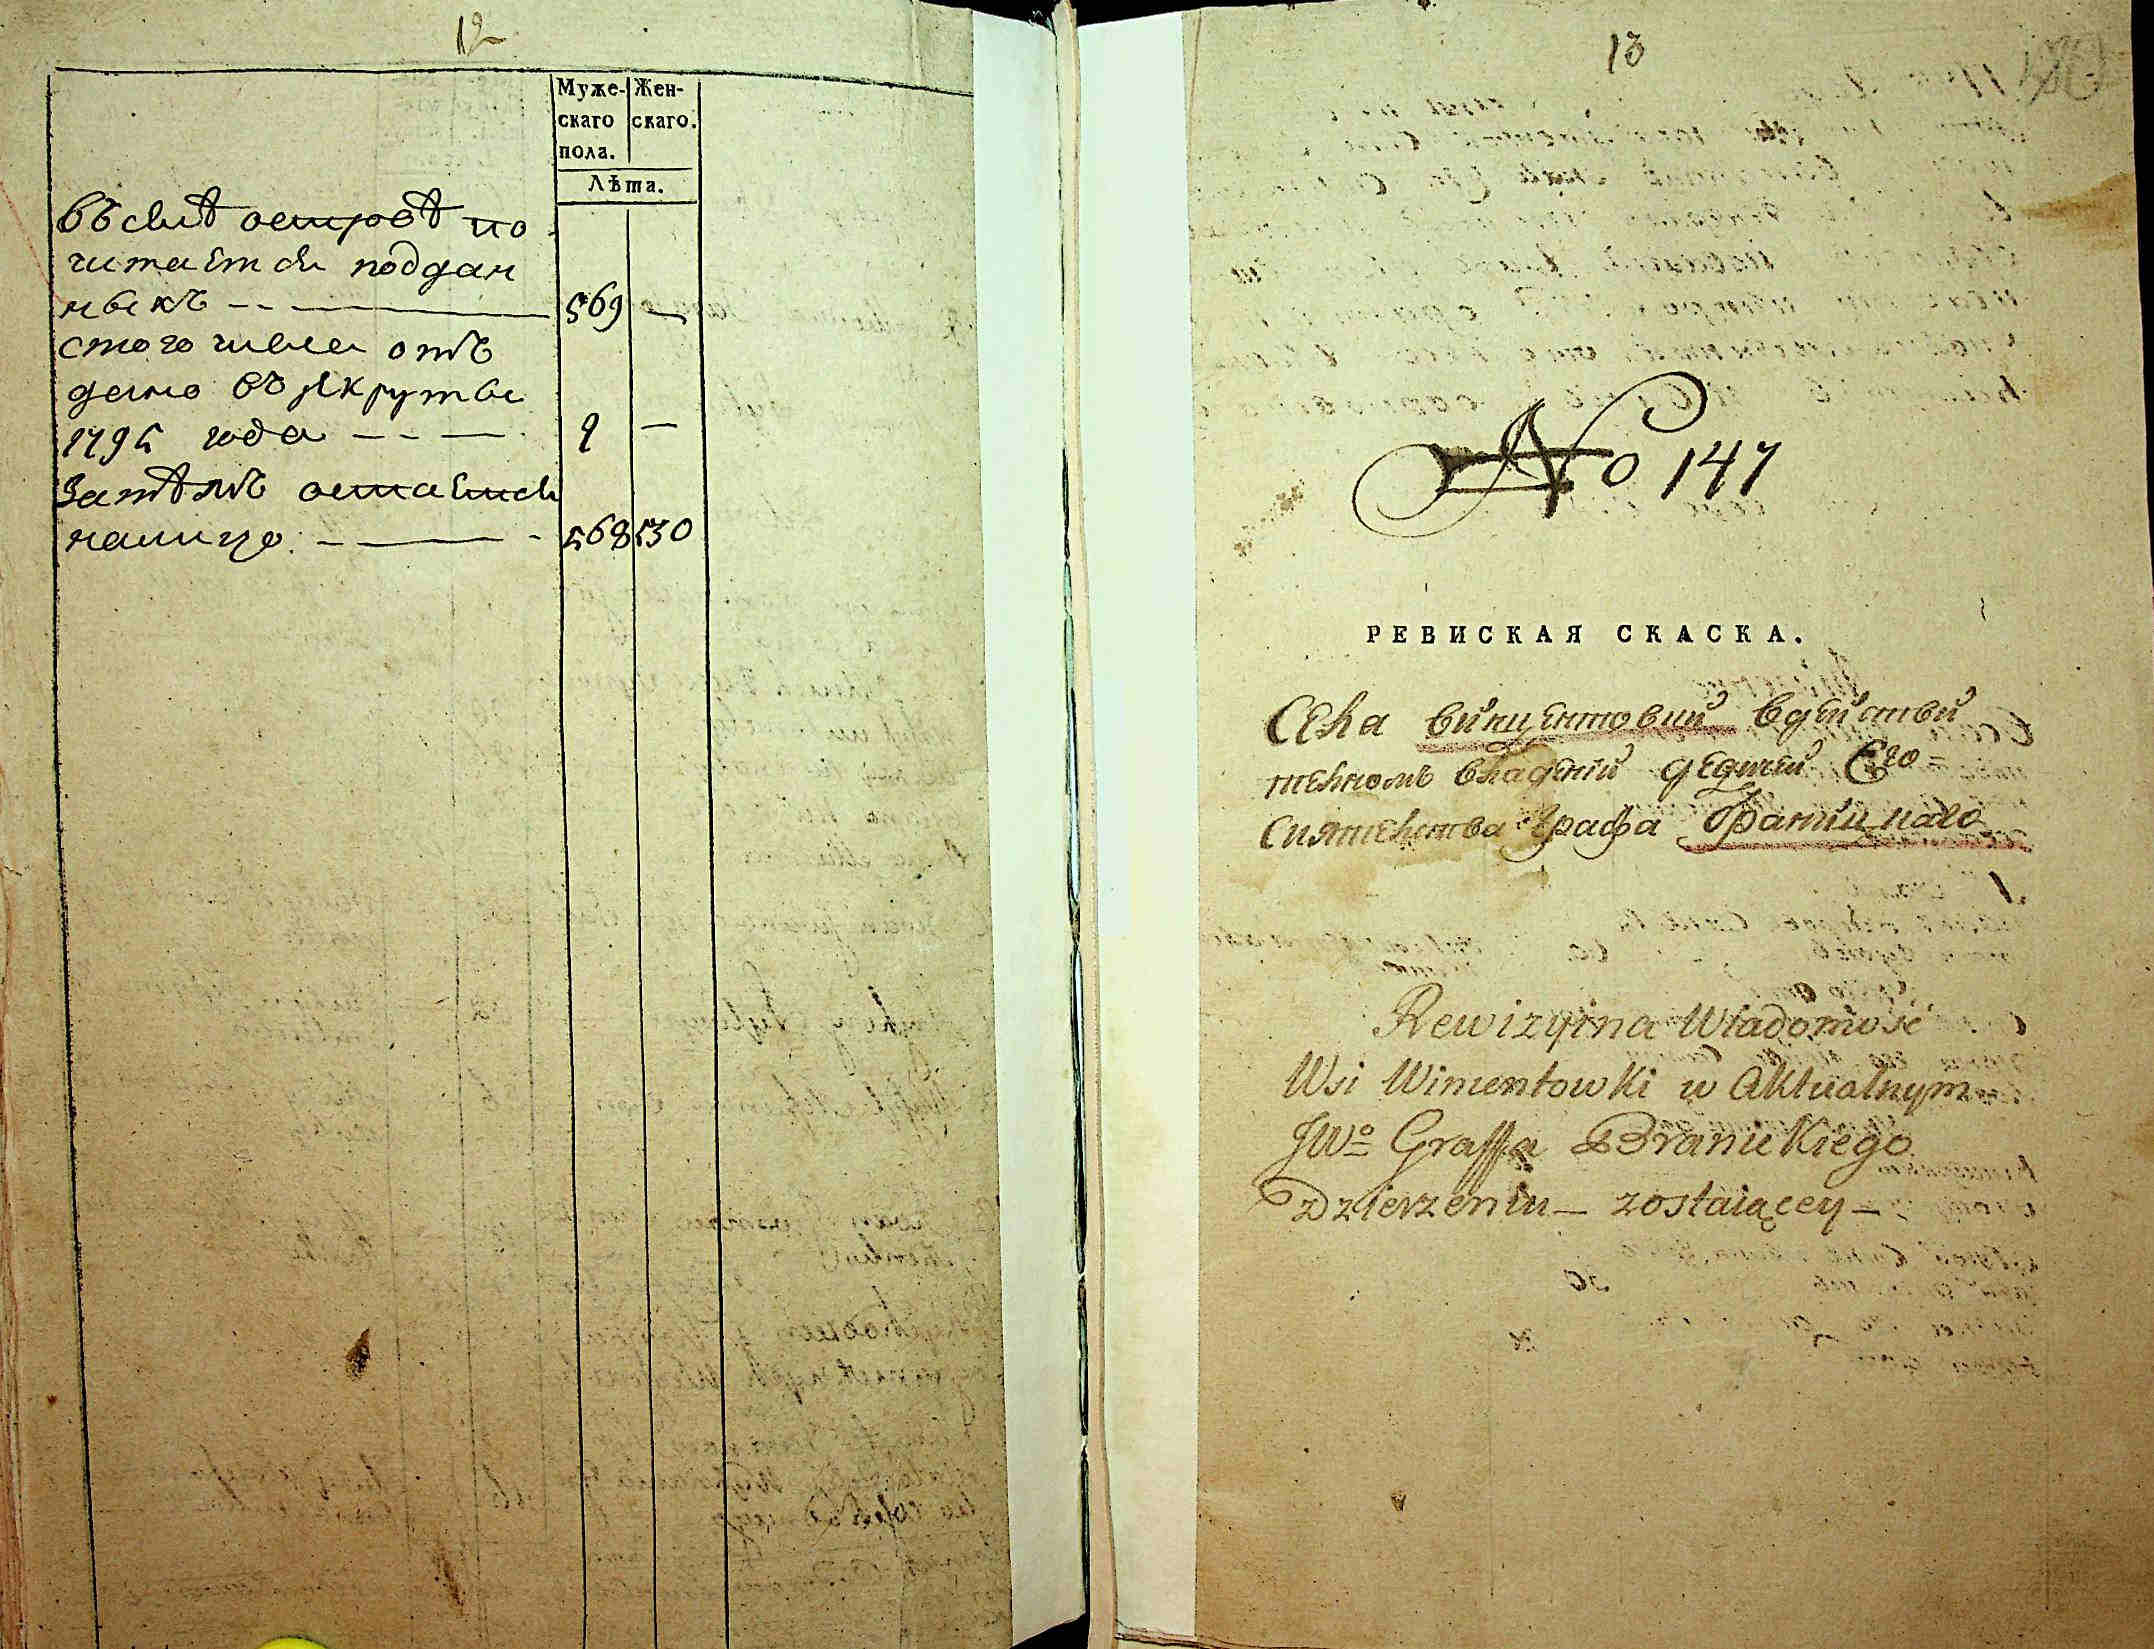 12
Муже-
скаго
пола.
Жен-
скаго.
Лѣта.
въ селѣ островѣ по
читаетси поддан
ныхъ — — 569 —
стого числа отъ
дано въ рекруты
1795 года — — — 1 —
Затѣмъ остаетси
налицо — — 568 530
13
No 147
РЕВИСКАЯ СКАСКА.
Села винцентовки вдѣйстви
телномъ владѣнïи Его
Сиятелства Графа Браницкаго
Rewizyina Wiadomość
Wsi Wincentowki w Aktualnym
JWo Graffa Branickiego
Dzierzeniu — zostaiącey —